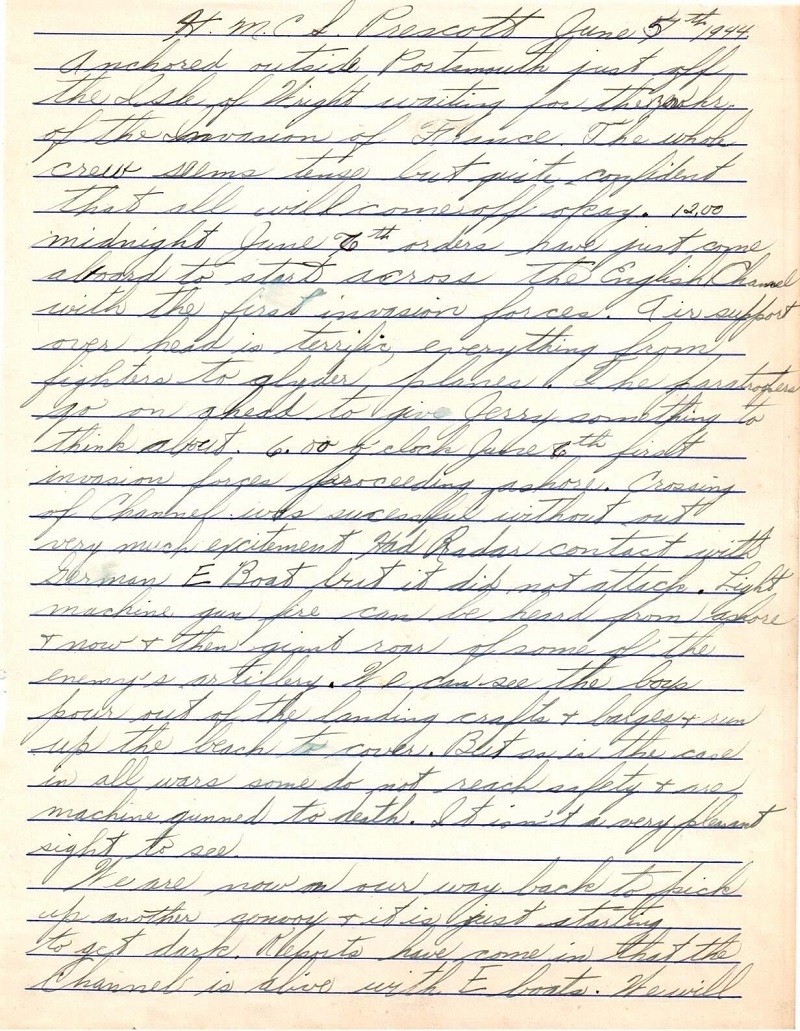 H.M.C.S. Prescott June 5th 1944
Anchored outside Portsmouth just off
the Isle of Wright waiting for the zero hr.
of the Invasion of France. The whole
crew seems tense but quite confident
that all will come off okay. 12.00
midnight June 6th orders have just come
aboard to start across the English Channel
with the first invasion forces. Air support
over head is terrific, everything from
fighters to glyder planes. The paratroopers
go on ahead to give Jerry something to
think about. 6.00 o'clock June 6th first
invasion forces proceeding ashore. Crossing
of Channel was sucessful without out
very much excitement. Had Radar contact with
German E Boat but it did not attack. Light
machine gun fire can be heard from ashore
+ now + then giant roar of some of the
enemy's artillery. We can see the boys
pour out of the landing crafts + barges + run
up the beach to cover. But as is the case
in all wars some do not reach safety + are
machine gunned to death. It isn't a very pleasant
sight to see.
We are now on our way back to pick
up another convoy + it is just starting
to get dark. Reports have come in that the
Channel is alive with E boats. We will